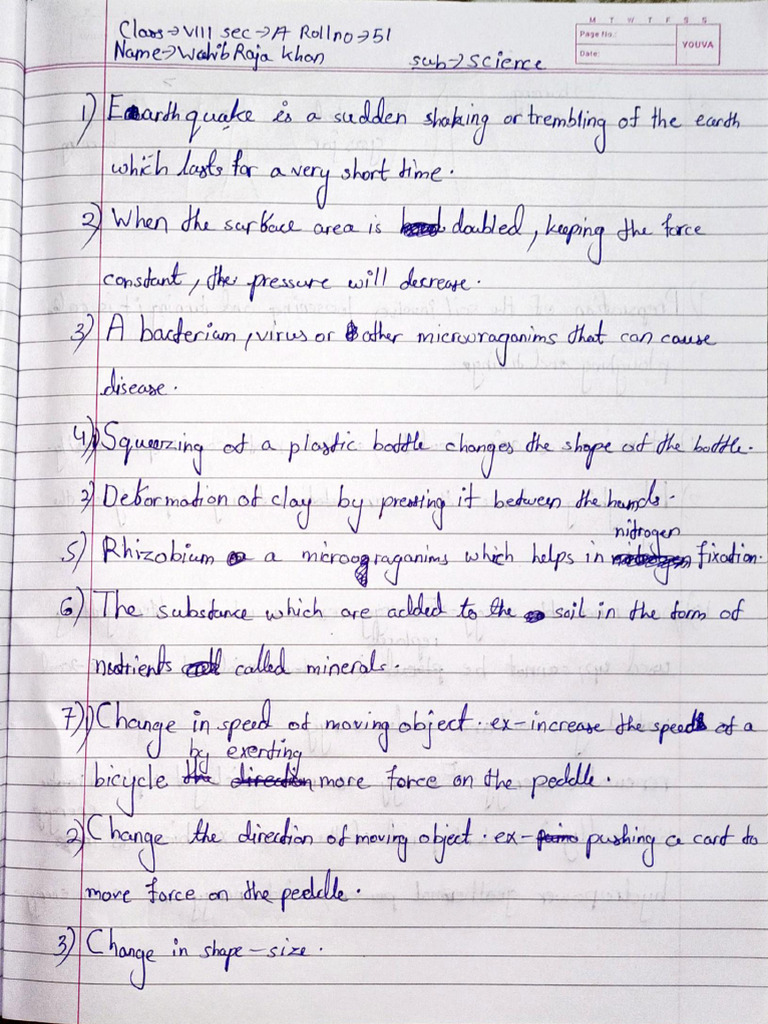 Class→VIII sec→A Rollno→51
Name→Wahib Raja Khan sub→Science
M T W T F S S
Page No.:
Date:
YOUVA
1) Earthquake is a sudden shaking or trembling of the earth
which lasts for a very short time.
2) When the surface area is doubled, keeping the force
constant, the pressure will decrease.
3) A bacterium, virus or other microoraganims that can cause
disease.
4)1) Squeezing of a plastic bottle changes the shape of the bottle.
2) Deformation of clay by pressing it between the hands.
nitrogen
5) Rhizobium a microograganims which helps in fixation.
6) The substance which are added to the soil in the form of
nutrients called minerals.
7)1) Change in speed of moving object. ex-increase the speed of a
by exerting
bicycle the direction more force on the peddle.
2) Change the direction of moving object. ex- pushing a cart to
more force on the peddle.
3) Change in shape-size.